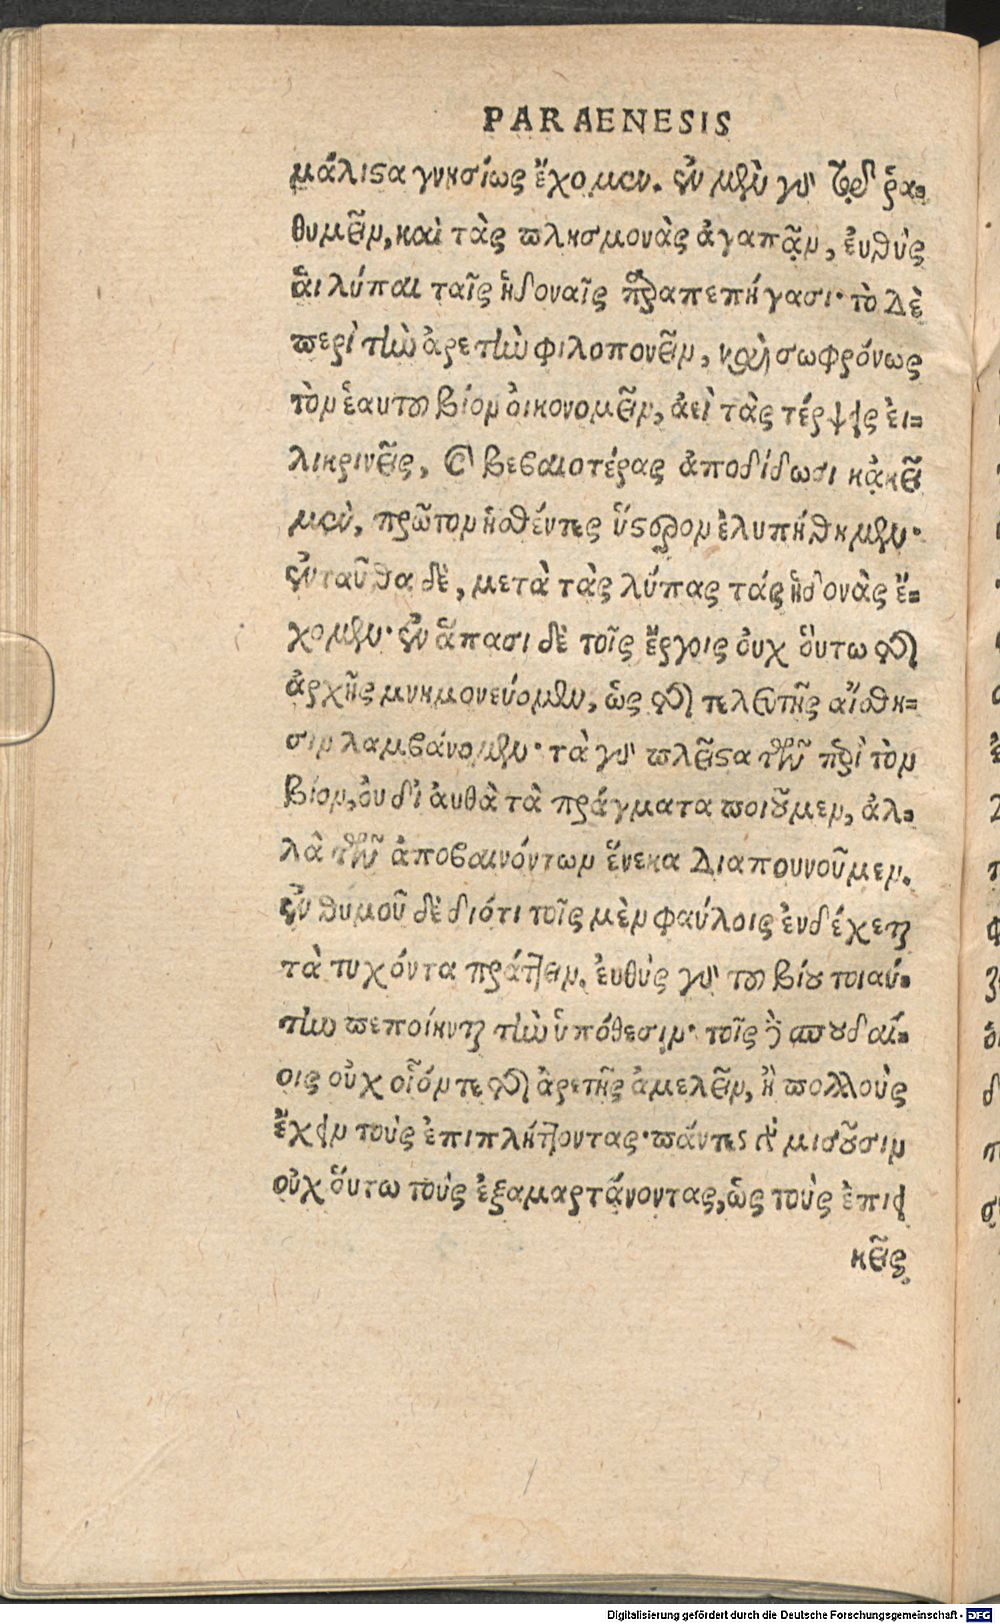 PARAENESIS
μάλιστα γνησίως ἔχομεν. ἐν μὲν γὰρ τῷ ῥα-
θυμεῖν, καὶ τὰς πλησμονὰς ἀγαπᾷν, ἐυθὺς
ἁι λύπαι ταῖς ἡδοναῖς παραπεπήγασι· τὸ δὲ
περὶ τὴν ἀρετὴν φιλοπονεῖν, καὶ σωφρόνως
τὸν ἑαυτοῦ βίον ὀικονομεῖν, ἀεὶ τὰς τέρψεις ἐι-
λικρινεῖς, καὶ βεβαιοτέρας ἀποδίδωσι κἀκεῖ
μὲν, πρῶτον ἡσθέντες ὕστερον ἐλυπήθημεν·
ἐνταῦθα δὲ, μετὰ τὰς λύπας τάς ἡδονὰς ἔ-
χομεν· ἐν ἅπασι δὲ τοῖς ἔργοις ὀυχ ὅυτω τῆς
ἀρχῆς μνημονεύομεν, ὡς τῆς τελευτῆς αἴσθη-
σιν λαμβάνομεν· τὰ γὰρ πλεῖστα τῶν περὶ τὸν
βίον, ὀυ δἰ ἀυθὰ τὰ πράγματα ποιοῦμεν, ἀλ-
λὰ τῶν ἀποβαινόντων ἕνεκα διαπουνοῦμεν.
ἐνθυμοῦ δὲ διότι τοῖς μὲν φαύλοις ἐνδέχεται
τὰ τυχόντα πράττειν, ἐυθὺς γὰρ τοῦ βίου τοιαύ-
την πεποίηνται τὴν ὑπόθεσιν· τοῖς δὲ σπουδαί-
οις οὐχ οἷόν τε τῆς ἀρετῆς ἀμελεῖν, ἢ πολλοὺς
ἔχειν τοὺς ἐπιπλήττοντας· πάντες γὰρ μισοῦσιν
οὐχ ὅυτω τοὺς ἐξαμαρτάνοντας, ὡς τοὺς ἐπιει
κεῖς
Digitalisierung gefördert durch die Deutsche Forschungsgemeinschaft - DFG